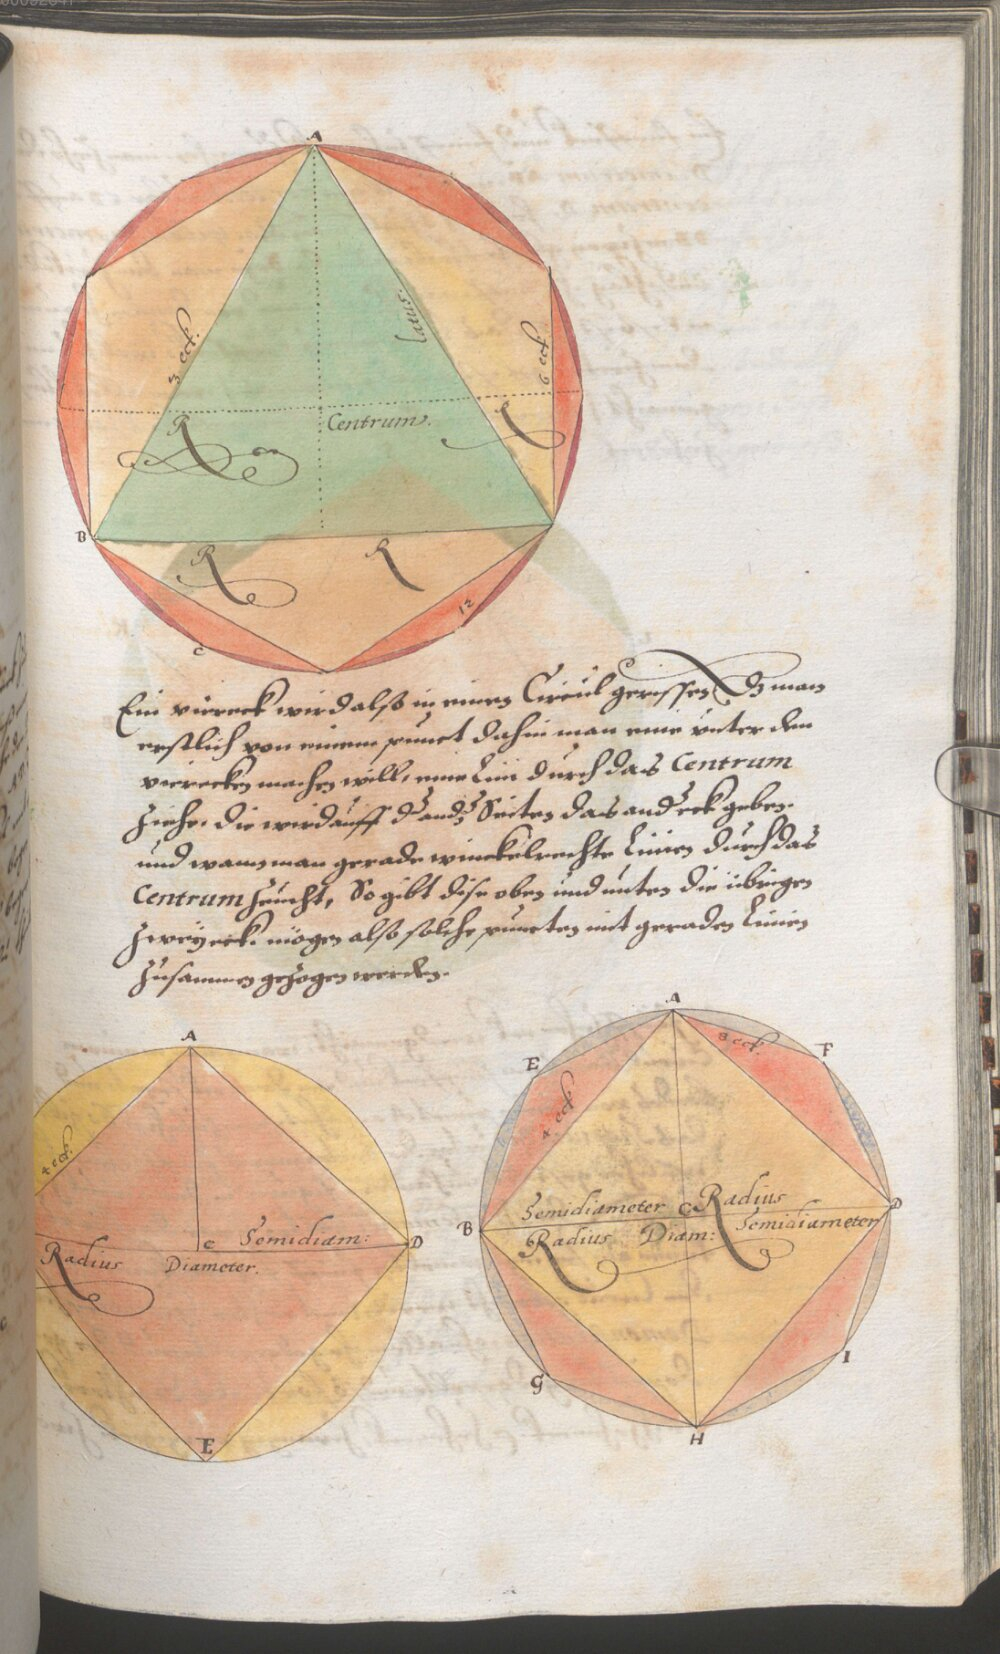 A
3 eck.
Latus.
6 eck
R
Centrum.
R
B
R
R
12
C
Ein viereck wird also in einen Circul gerissen, Dz man
erstlich von einem punct dahin man eine unter den
vierecken machen will, eine Lini durch das Centrum
Ziehe, die wird auff der andern Seiten das ander eck geben.
und wann man gerade winckelrechte Linien durch das
Centrum Zeucht, So gibt dise oben und unten die übrigen
Zwey eck. mögen also solche puncten mit geraden Linien
Zusammen gezogen werden.
A
4 eck.
C
Semidiam:
D
Radius
Diameter.
E
A
8 eck.
E
F
4 eck
Semidiameter
C
Radius
D
B
Radius
Diam:
Semidiameter
G
I
H